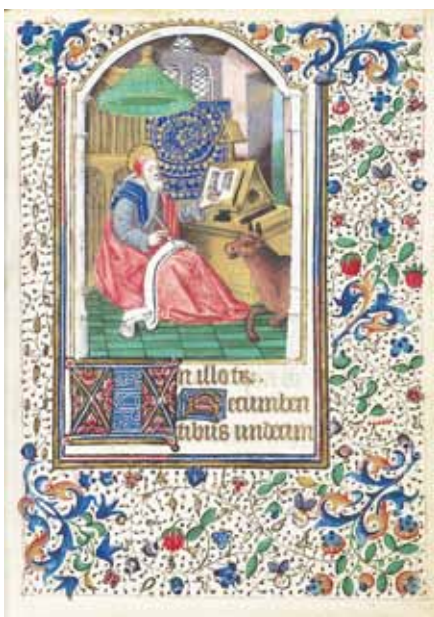 In illo te.
Recumben
tibus undecim